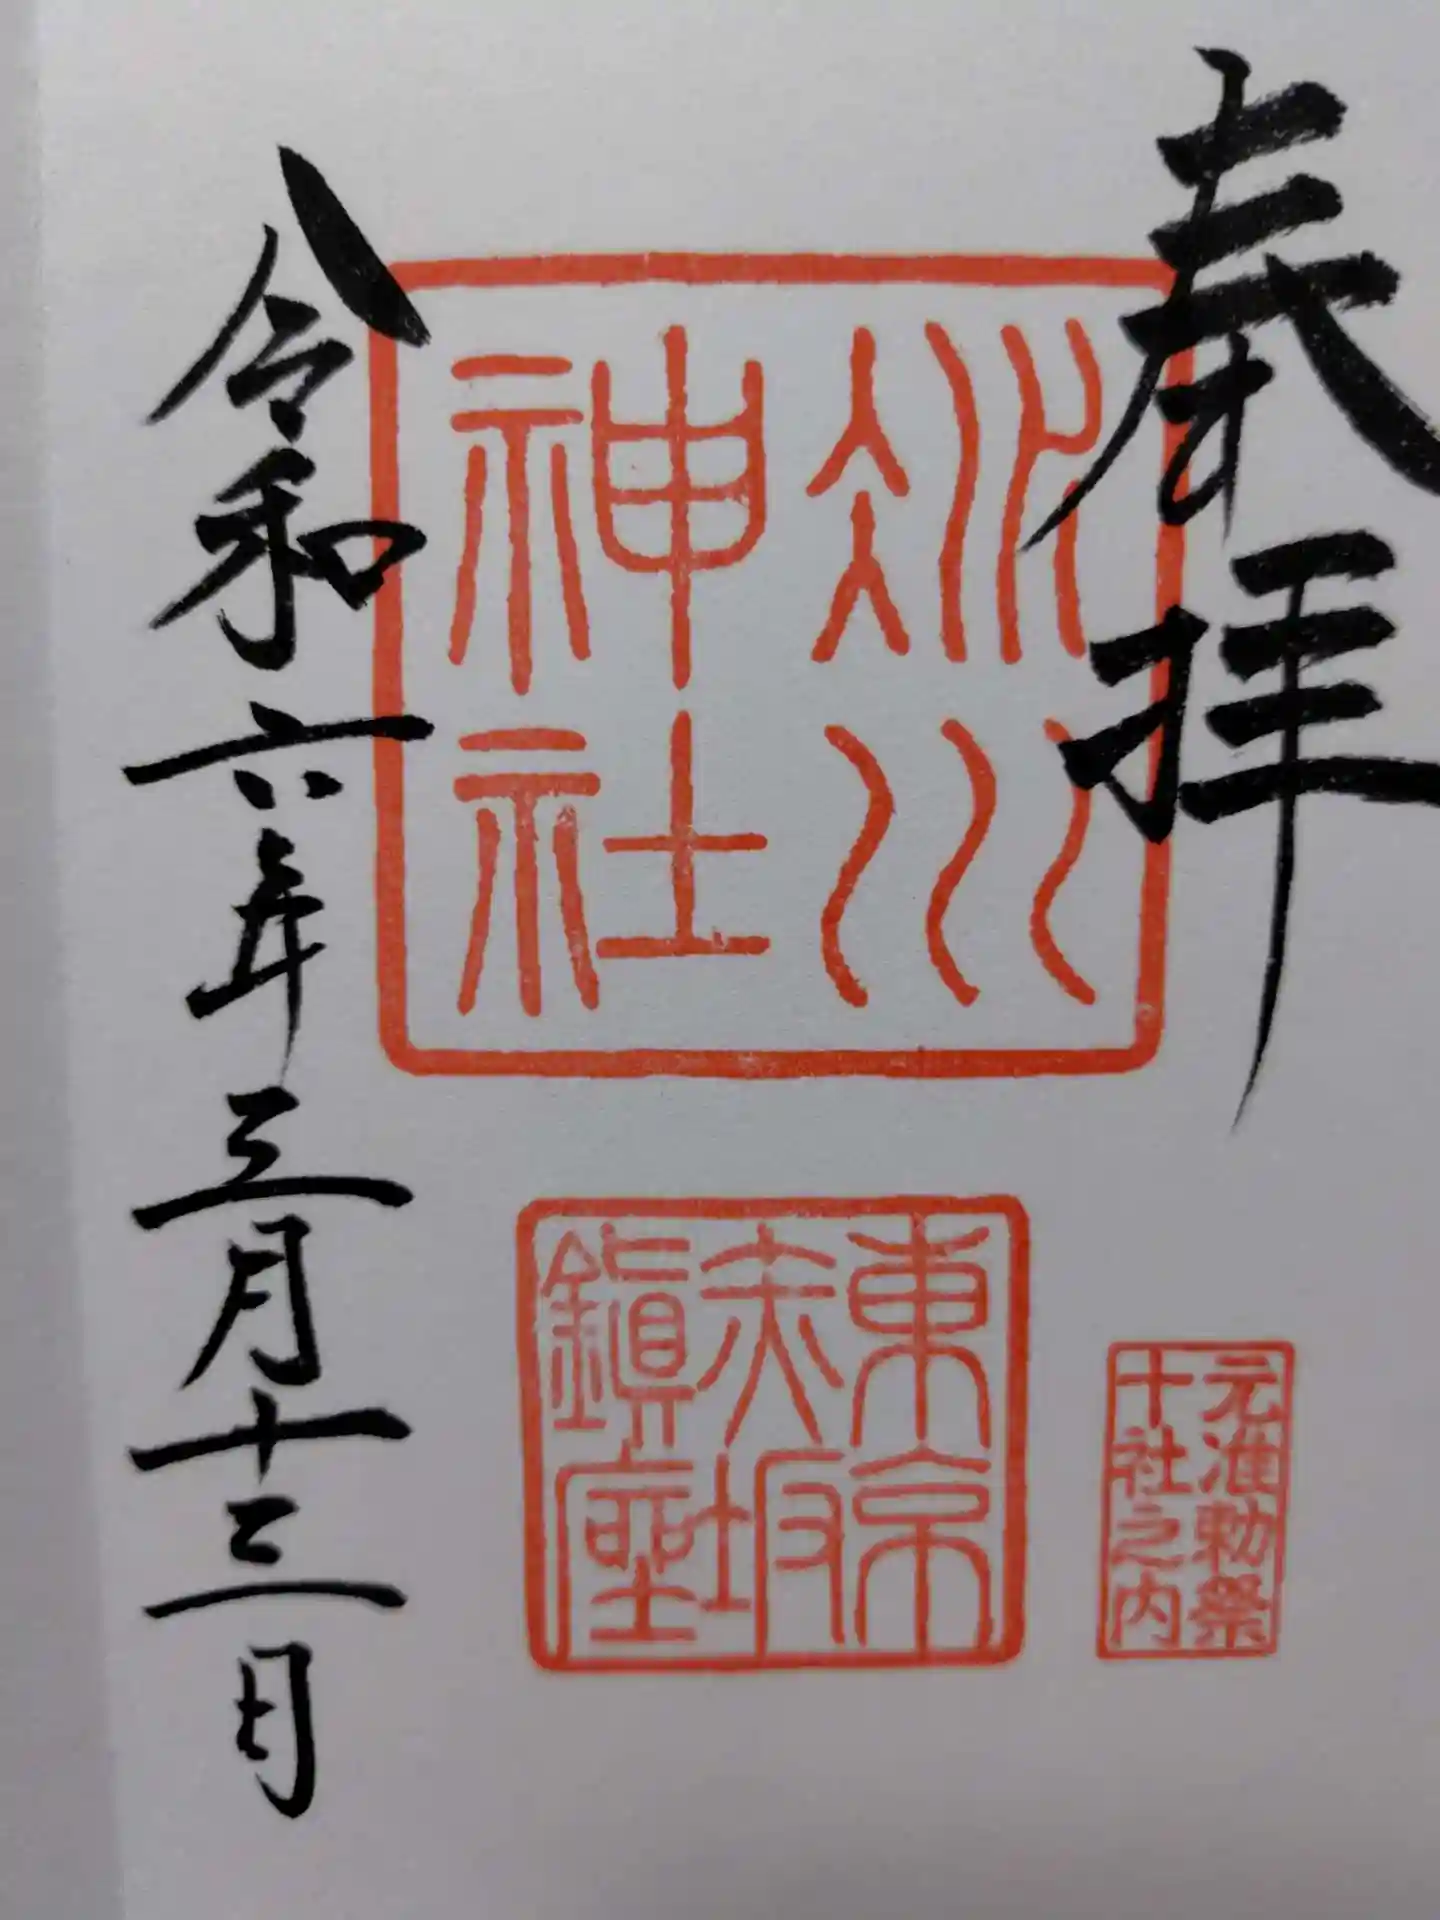 奉拝
氷川
神社
東京
赤坂
鎮座
元准勅祭
十社之内
令和六年三月十三日